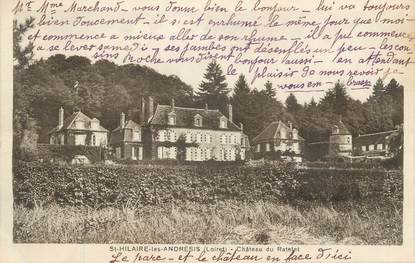 Mr Mme Marchand - vous donne bien le bonjour - lui va toujours
bien doucement - il s'est enrhumé le même jour que moi -
et commence a mieux aller de son rhume - il a put commencer
a se lever samedi - ses jambes ont désenflés un peu - les cou-
sins Proche vous donnent bonjour aussi - en attendant
le plaisir de nous revoir
je vous embrasse
St-HILAIRE-les-ANDRÉSIS (Loiret) - Château du Ratelet
Le parc - et le château en face d'ici